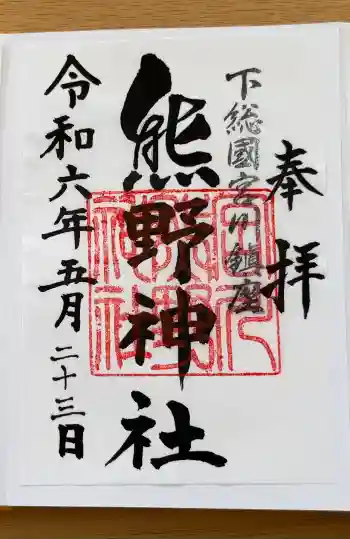 奉拝
下総國宮川鎮座
熊野神社
令和六年五月二十三日